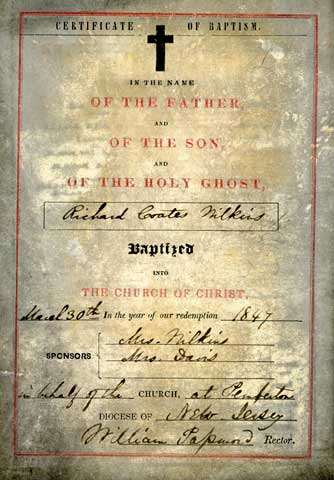 CERTIFICATE OF BAPTISM.
IN THE NAME
OF THE FATHER,
AND
OF THE SON,
AND
OF THE HOLY GHOST,
Richard Coates Wilkins
Baptized
INTO
THE CHURCH OF CHRIST,
March 30th In the year of our redemption 1847
SPONSORS
Mrs. Wilkins
Mrs. Davis
in behalf of the CHURCH, at Pemberton
DIOCESE OF New Jersey
William Rector.